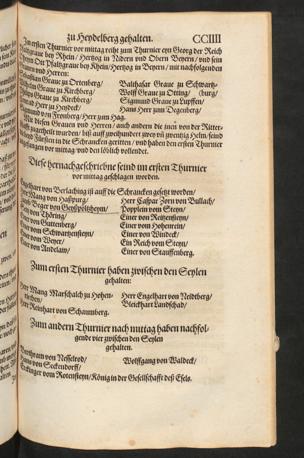 zu Heydelberg gehalten. CCIIII
Im ersten Thurnier vor mittag reihe zum Thurnier eyn Georg der Reich
Pfaltzgraue bey Rhein / Hertzog in Nidern vnd Obern Beyern / vnd sein
Ohem Ott Pfaltzgraue bey Rhein / Hertzog in Beyern / mit nachfolgenden
vnd Herren:
Graue zu Ortenberg /
Graue zu Kirchberg /
Graue zu Kirchberg /
Herr zu Heydeck /
von Fronberg / Herr zum Hag.
Balthasar Graue zu Schwartz-
Wolff Graue zu Otting / (burg /
Sigmund Graue zu Lupffen /
Hans Herr zum Degenberg /
Mit diesen Grauen vnd Herren / auch andern die jnen von der Ritter-
zugetheilt wurden / biß auff zweyhundert zwey vñ zwentzig Helm / seind
in die Schrancken geritten / vnd haben den ersten Thurnier
angefangen vor mittag vnd den löblich vollendet.
Diese hernachgeschriebne seind im ersten Thurnier
vor mittag geschlagen worden.
Engelhart von Berlaching ist auff die Schrancken gesetzt worden /
von Haspurg /
Beger von Geyspoltzheym /
von Thöring /
Einer von Guttenberg /
Einer von Schwartzensteyn /
Einer von Weyer /
Einer von Andelaw /
Herr Caspar Zorn von Bullach /
Popplein vom Steyn /
Einer von Reitzensteyn /
Einer vom Hohenrein /
Einer von Windeck /
Ein Reich vom Steyn /
Einer von Stauffenberg.
Zum ersten Thurnier haben zwischen den Seylen
gehalten:
Herr Mang Marschalch zu Hohen-
reichen /
Herr Reinhart von Schaumberg.
Herr Engelhart von Neidtberg /
Bleickhart Landschad /
Zum andern Thurnier nach mittag haben nachfol-
gende vier zwischen den Seylen
gehalten.
Berthram von Nesselrod /
Hans von Seckendorff /
Wolffgang von Waldeck /
vom Rotensteyn / König in der Gesellschafft deß Esels.